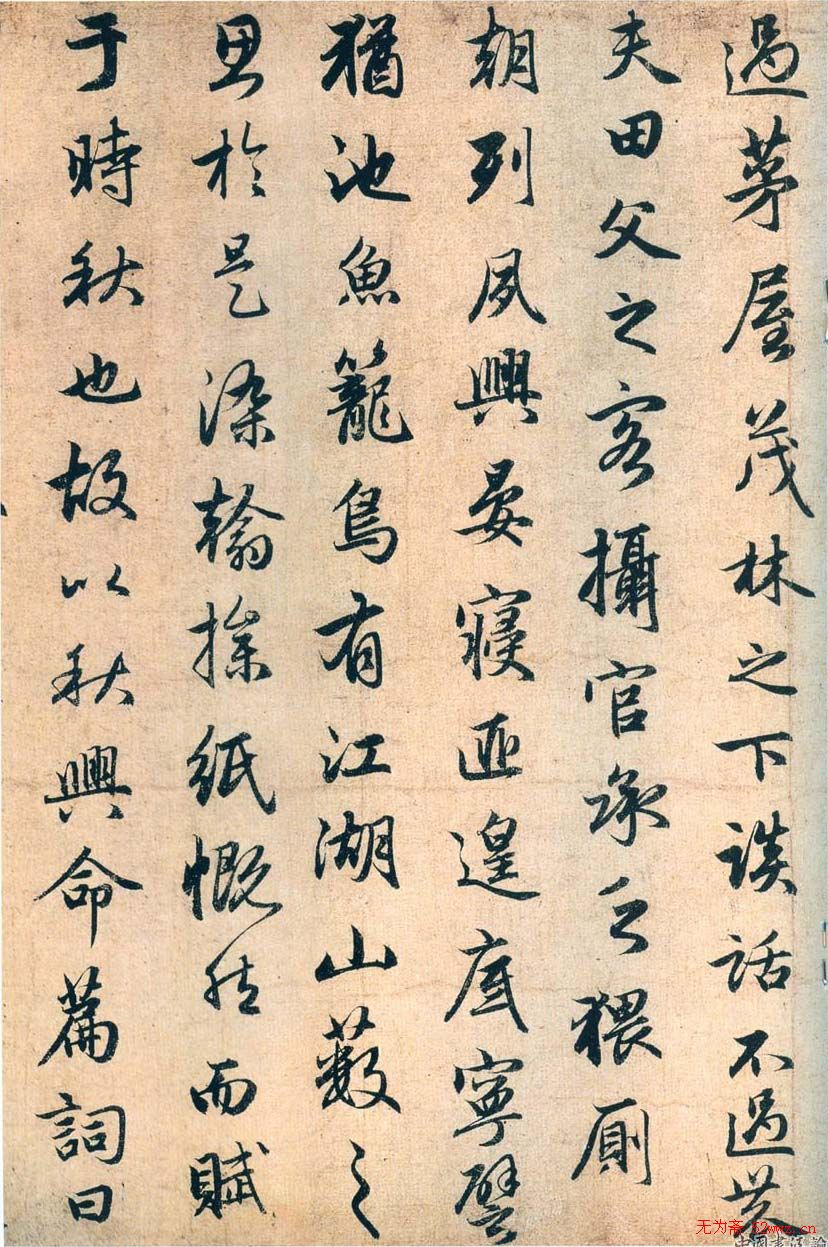 過茅屋茂林之下談話不過農
夫田父之客攝官承乏猥厠
朝列夙興晏寢匪遑底寧譬
猶池魚籠鳥有江湖山藪之
思於是染翰操紙慨然而賦
于時秋也故以秋興命篇詞曰
无为斋 52wwz.cn
中国书法论